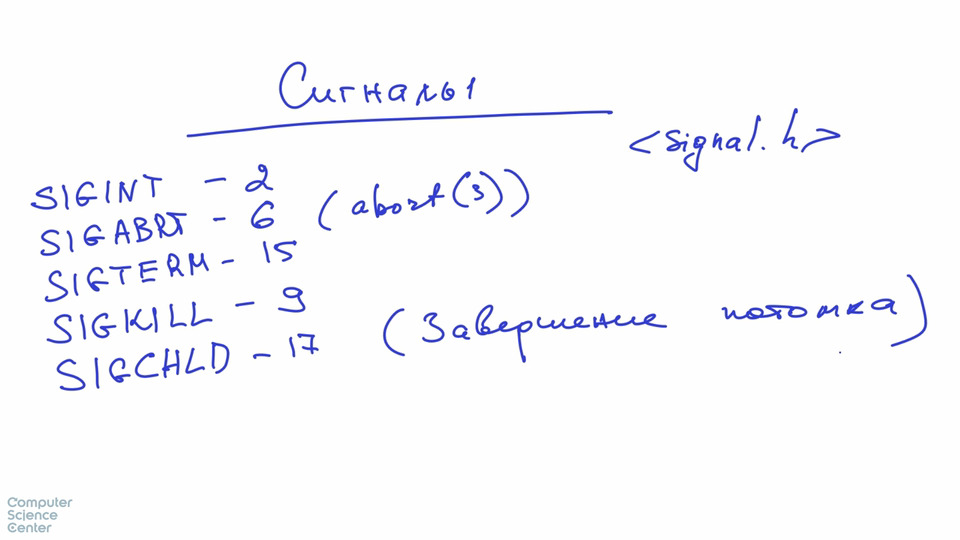 Сигналы
<signal.h>
SIGINT - 2
SIGABRT - 6 (abort(3))
SIGTERM - 15
SIGKILL - 9
SIGCHLD - 17 (Завершение потомка)
Computer
Science
Center